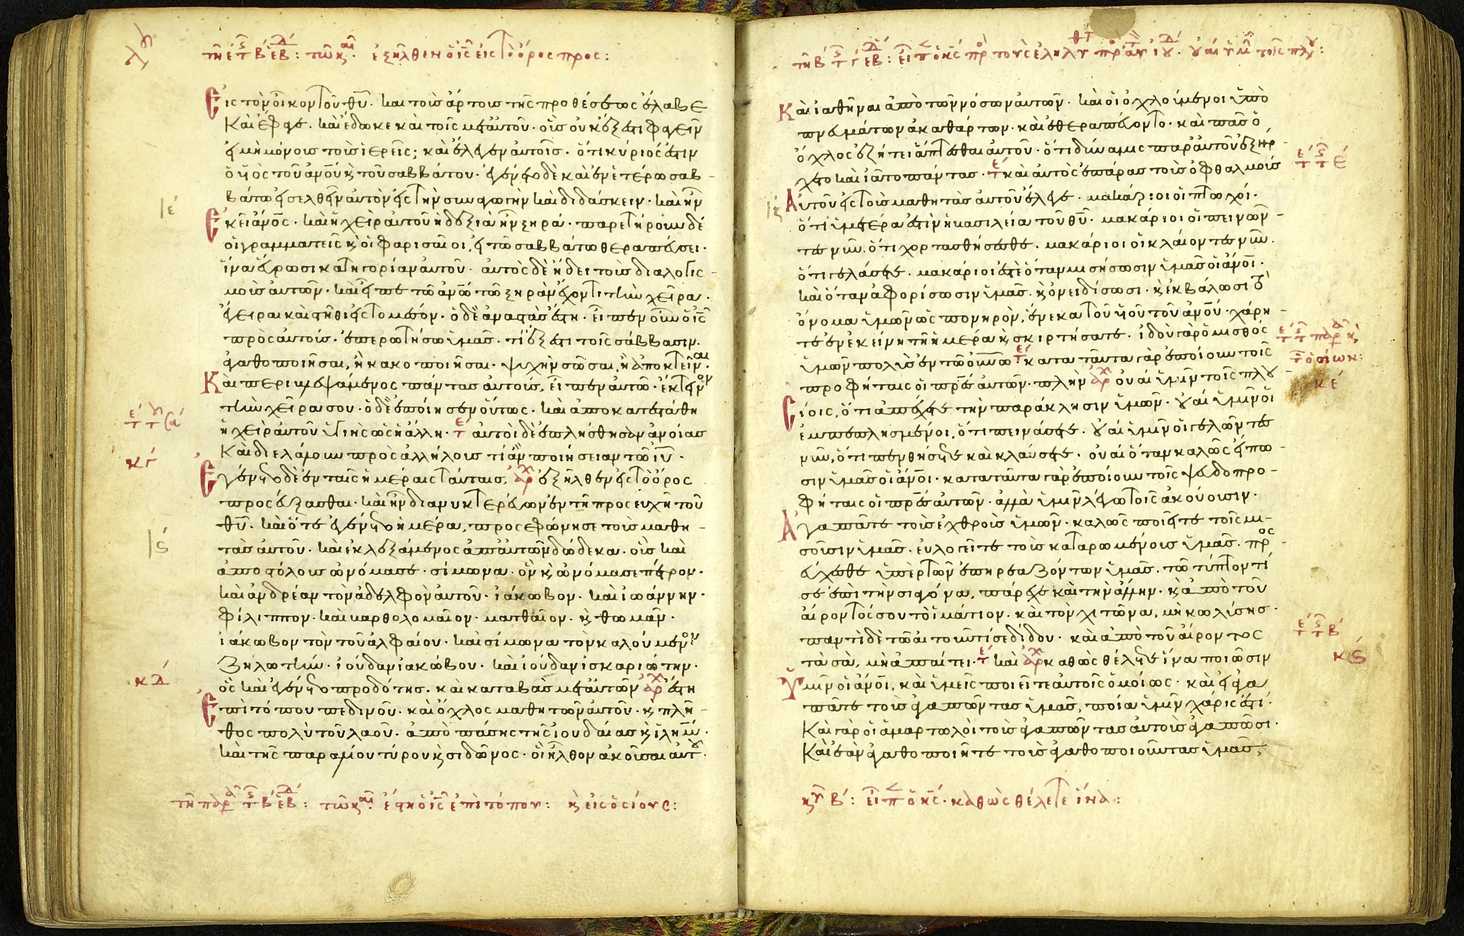 ἐξῆλθεν ὁ ις εἰς τὸ ὄρος προσ:
Εἰς τὸν οἶκον τοῦ θυ· καὶ τοὺς ἄρτους τῆς προθέσεως ἔλαβε
Καὶ ἔφαγε· καὶ ἔδωκε καὶ τοῖς μετ αὐτοῦ· οὓς οὐκ ἔξεστι φαγεῖν
εἰ μὴ μόνους τοὺς ἱερεῖς; καὶ ἔλεγεν αὐτοῖς· ὅτι κύριός ἐστιν
ὁ υἱὸς τοῦ ἀνου κ τοῦ σαββάτου· ἐγένετο δὲ καὶ ἐν ἑτέρω σαβ-
βάτω εἰσελθεῖν αὐτὸν εἰς τὴν συναγωγὴν καὶ διδάσκειν· καὶ ἦν
Ἐκεῖ ἄνος· καὶ ἡ χεὶρ αὐτοῦ ἡ δεξιὰ ἦν ξηρά· παρετήρουν δὲ
οἱ γραμματεῖς κ οἱ φαρισαῖοι, εἰ τῶ σαββάτω θεραπεύσει·
ἵνα εὕρωσι κατηγορίαν αὐτοῦ· αὐτὸς δὲ ἤδει τοὺς διαλογισ-
μοὺς αὐτῶν· καὶ εἶπε τῶ ἀνω τῶ ξηρὰν ἔχοντι τὴν χεῖρα·
ἔγειραι καὶ στῆθι εἰς τὸ μέσον· ὁ δὲ ἀναστὰς ἔστη· εἶπεν οὖν ὁ ις
πρὸς αὐτούς· ἐπερωτήσω ὑμᾶς· τί ἔξεστι τοῖς σάββασιν·
ἀγαθοποιῆσαι, ἢ κακοποιῆσαι· ψυχὴν σῶσαι, ἢ ἀποκτεῖναι·
Καὶ περιβλεψάμενος πάντας αὐτούς, εἶπεν αὐτῶ· ἔκτεινον
τὴν χεῖρα σου· ὁ δὲ ἐποίησεν οὕτως· καὶ ἀποκατεστάθη
ἡ χεὶρ αὐτοῦ ὑγιὴς ὡς ἡ ἄλλη· αὐτοὶ δὲ ἐπλήσθησαν ἀνοίας
Καὶ διελάλουν πρὸς ἀλλήλους τί ἂν ποιήσειαν τῶ ιυ·
Ἐγένετο δὲ ἐν ταῖς ἡμέραις ταύταις, ἐξῆλθεν εἰς τὸ ὄρος
προσεύξασθαι· καὶ ἦν διανυκτερεύων ἐν τῆ προσευχῆ τοῦ
θυ· καὶ ὅτε ἐγένετο ἡμέρα, προσεφώνησε τοὺς μαθη-
τὰς αὐτοῦ· καὶ ἐκλεξάμενος ἀπ αὐτῶν δώδεκα· οὓς καὶ
ἀποστόλους ὠνόμασε· σίμωνα· ὃν κ ὠνόμασε πέτρον·
καὶ ἀνδρέαν τὸν ἀδελφὸν αὐτοῦ· ἰάκωβον· καὶ ἰωάννην·
φίλιππον· καὶ βαρθολομαῖον· ματθαῖον· κ θωμᾶν·
ἰάκωβον τὸν τοῦ ἀλφαίου· καὶ σίμωνα τὸν καλούμενον
ζηλωτήν· ἰούδαν ἰακώβου· καὶ ἰούδαν ἰσκαριώτην·
ὃς καὶ ἐγένετο προδότης· καὶ καταβὰς μετ αὐτῶν ἔστη
Ἐπὶ τόπου πεδινοῦ· καὶ ὄχλος μαθητῶν αὐτοῦ· κ πλῆ-
θος πολὺ τοῦ λαοῦ· ἀπὸ πάσης τῆς ἰουδαίας κ ιλημ·
καὶ τῆς παραλίου τύρου κ σιδῶνος· οἳ ἦλθον ἀκοῦσαι αὐτοῦ·
ἔστη ὁ ις ἐπὶ τόπου:
Καὶ ἰαθῆναι ἀπὸ τῶν νόσων αὐτῶν· καὶ οἱ ὀχλούμενοι ὑπὸ
πνευμάτων ἀκαθάρτων· καὶ ἐθεραπεύοντο· καὶ πᾶς ὁ
ὄχλος ἐζήτει ἅπτεσθαι αὐτοῦ· ὅτι δύναμις παρ αὐτοῦ ἐξήρ-
χετο καὶ ἰᾶτο πάντας· καὶ αὐτὸς ἐπάρας τοὺς ὀφθαλμοὺς
Αὐτοῦ εἰς τοὺς μαθητὰς αὐτοῦ ἔλεγε· μακάριοι οἱ πτωχοί·
ὅτι ὑμετέρα ἐστὶν ἡ βασιλεία τοῦ θυ· μακάριοι οἱ πεινῶν-
τες νῦν· ὅτι χορτασθήσεσθε· μακάριοι οἱ κλαίοντες νῦν·
ὅτι γελάσετε· μακάριοι ἐστὲ ὅταν μισήσωσιν ὑμᾶς οἱ ἄνοι·
καὶ ὅταν ἀφορίσωσιν ὑμᾶς· κ ὀνειδίσωσι· κ ἐκβάλωσι τὸ
ὄνομα ὑμῶν ὡς πονηρὸν, ἕνεκα τοῦ υἱοῦ τοῦ ἀνου· χάρη-
τε ἐν ἐκείνη τῆ ἡμέρα κ σκιρτήσατε· ἰδοὺ γὰρ ὁ μισθὸς
ὑμῶν πολὺς ἐν τῶ οὐνω· κατὰ ταῦτα γὰρ ἐποίουν τοῖς
προφήταις οἱ πρες αὐτῶν· πλὴν οὐαὶ ὑμῖν τοῖς πλου
Σίοις, ὅτι ἀπέχετε τὴν παράκλησιν ὑμῶν· οὐαὶ ὑμῖν οἱ
ἐμπεπλησμένοι, ὅτι πεινάσετε· οὐαὶ ὑμῖν οἱ γελῶντες
νῦν, ὅτι πενθήσετε καὶ κλαύσετε· οὐαὶ ὅταν καλῶς εἴπω-
σιν ὑμᾶς οἱ ἄνοι· κατὰ ταῦτα γὰρ ἐποίουν τοῖς ψευδοπρο-
φήταις οἱ πρες αὐτῶν· ἀλλὰ ὑμῖν λέγω τοῖς ἀκούουσιν·
Ἀγαπᾶτε τοὺς ἐχθροὺς ὑμῶν· καλῶς ποιεῖτε τοῖς μι-
σοῦσιν ὑμᾶς· εὐλογεῖτε τοὺς καταρωμένους ὑμᾶς· προσ
εύχεσθε ὑπὲρ τῶν ἐπηρεαζόντων ὑμᾶς· τῶ τύπτοντί
σε ἐπὶ τὴν σιαγόνα, πάρεχε καὶ τὴν ἄλλην· κ ἀπὸ τοῦ
αἴροντός σου τὸ ἱμάτιον· καὶ τὸν χιτῶνα, μὴ κωλύσης·
παντὶ δὲ τῶ αἰτοῦντί σε δίδου· καὶ ἀπὸ τοῦ αἴροντος
τὰ σὰ, μὴ ἀπαίτει· καὶ καθὼς θέλετε ἵνα ποιῶσιν
Ὑμῖν οἱ ἄνοι, καὶ ὑμεῖς ποιεῖτε αὐτοῖς ὁμοίως· καὶ εἰ ἀγα
πᾶτε τοὺς ἀγαπῶντας ὑμᾶς, ποία ὑμῖν χάρις ἐστί·
Καὶ γὰρ οἱ ἁμαρτωλοὶ τοὺς ἀγαπῶντας αὐτοὺς ἀγαπῶσι·
Καὶ ἐὰν ἀγαθοποιῆτε τοὺς ἀγαθοποιοῦντας ὑμᾶς,
καθὼς θέλετε ἵνα: